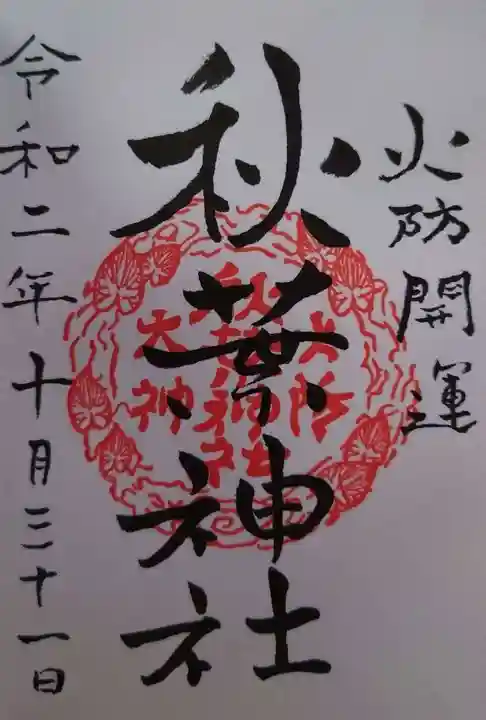 火防開運
秋葉神社
令和二年十月三十一日
秋葉神社
大神